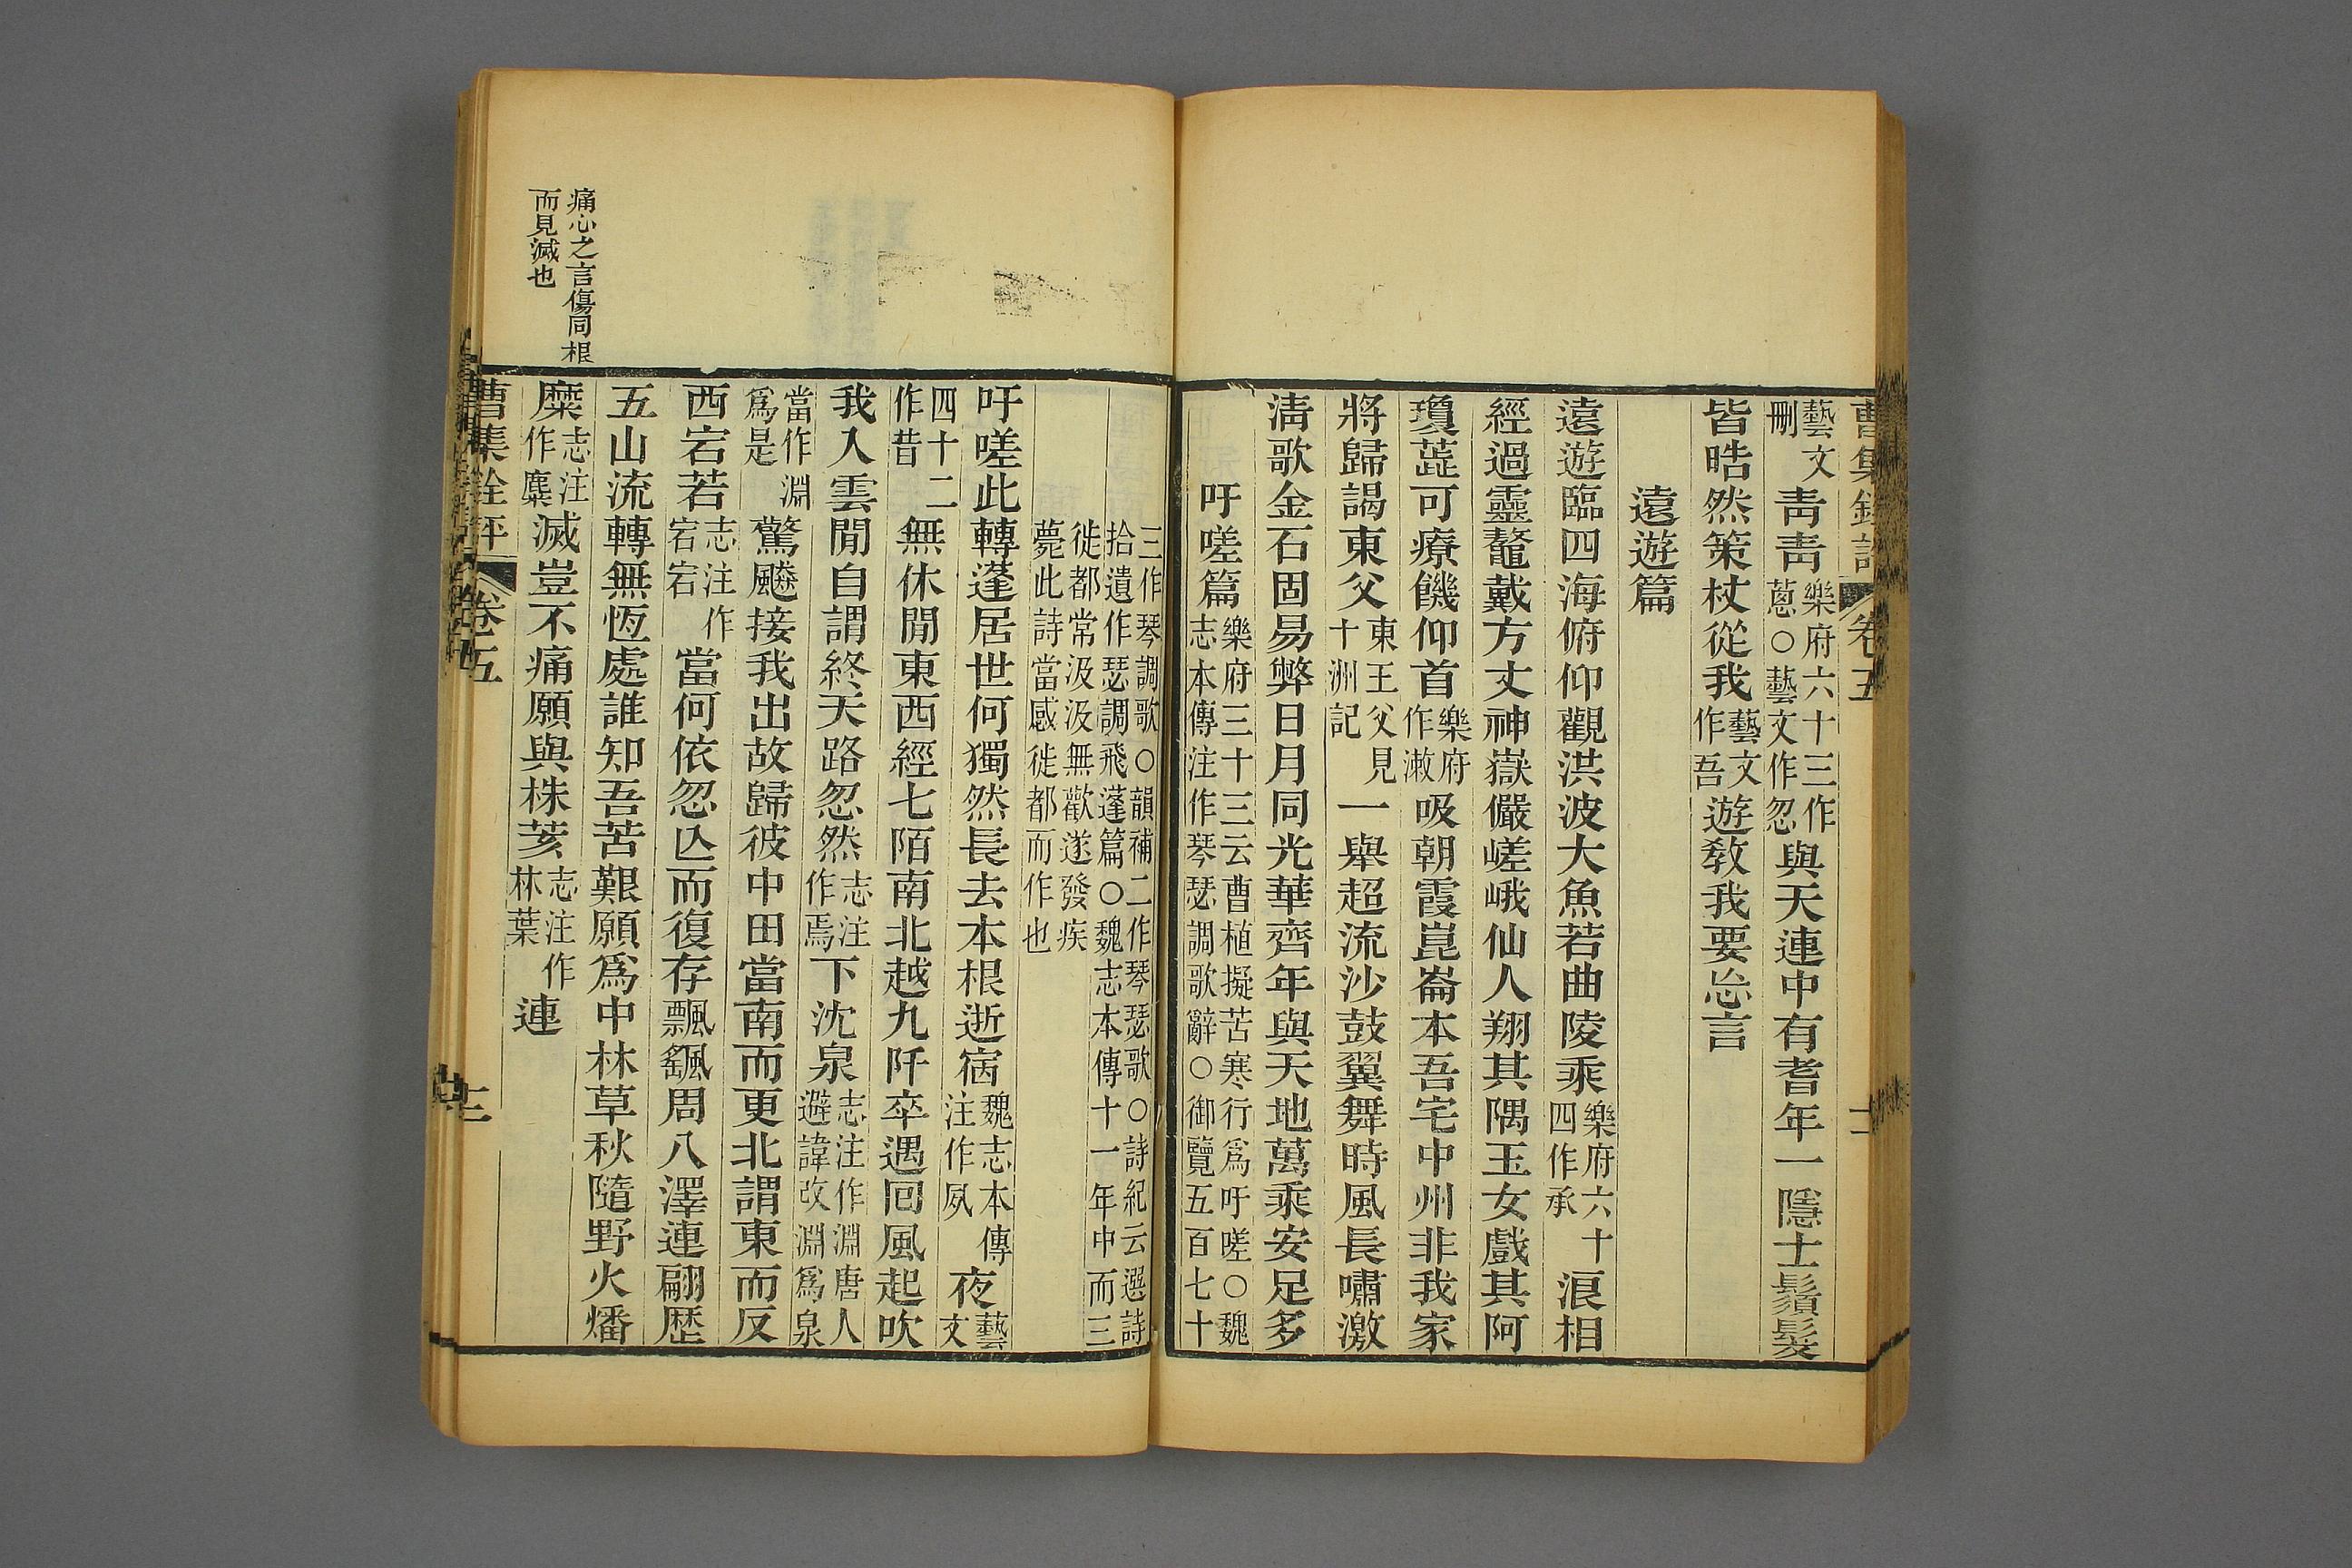 曹集銓評 卷五
藝文刪青青樂府六十三作蔥○藝文作忽與天連中有耆年一隱士鬚髮
皆皓然策杖從我藝文作吾遊敎我要忘言
遠遊篇
遠遊臨四海俯仰觀洪波大魚若曲陵乘樂府六十四作承浪相
經過靈鼇戴方丈神嶽儼嵯峨仙人翔其隅玉女戲其阿
瓊蕋可療饑仰首樂府作漱吸朝霞崑崙本吾宅中州非我家
將歸謁東父東王父見十洲記一舉超流沙鼓翼舞時風長嘯激
淸歌金石固易弊日月同光華齊年與天地萬乘安足多
吁嗟篇樂府三十三云曹植擬苦寒行爲吁嗟○魏志本傳注作琴瑟調歌辭○御覽五百七十
三作琴調歌○韻補二作琴瑟歌○詩紀云選詩拾遺作瑟調飛蓬篇○魏志本傳十一年中而三
徙都常汲汲無歡遂發疾薨此詩當感徙都而作也
吁嗟此轉蓬居世何獨然長去本根逝宿魏志本傳注作夙夜藝文
四十二作昔無休閒東西經七陌南北越九阡卒遇回風起吹
我入雲閒自謂終天路忽然志注作焉下沈泉志注作淵唐人避諱改淵爲泉
當作淵爲是驚飇接我出故歸彼中田當南而更北謂東而反
西宕若志注作宕宕當何依忽亾而復存飄颻周八澤連翩歷
五山流轉無恆處誰知吾苦艱願爲中林草秋隨野火燔
糜志注作麋滅豈不痛願與株荄志注作林葉連
痛心之言傷同根
而見滅也
曹集銓評 卷五 十二